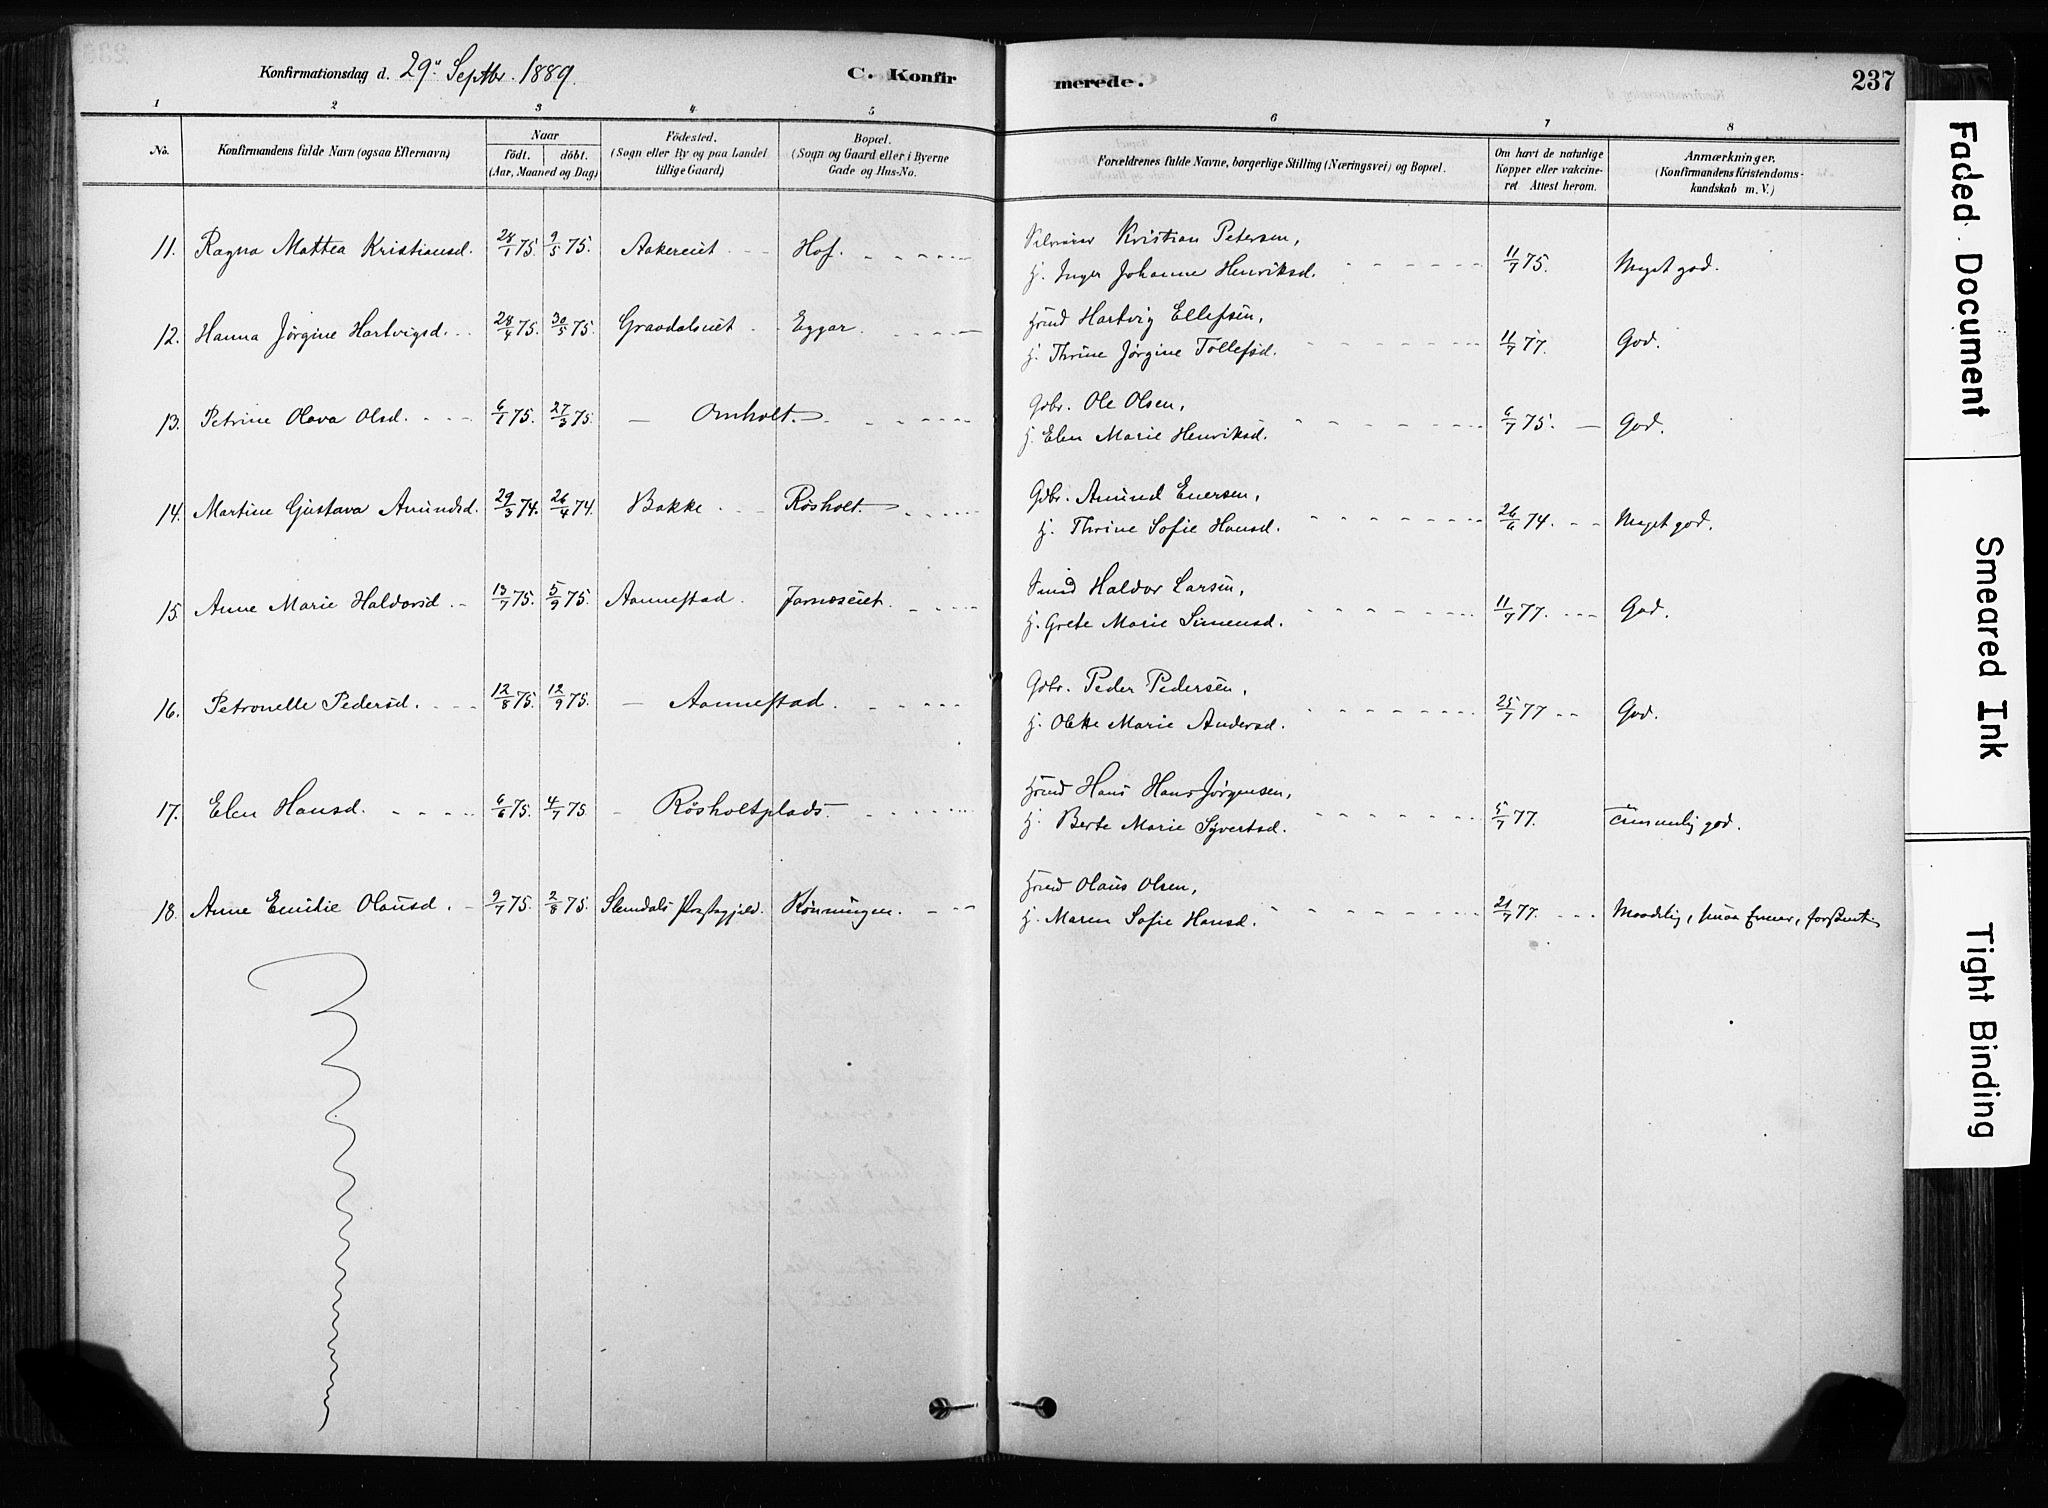 Konfirmationsdag d. 29de Septbr. 1889.
C. Konfirmerede.
237
1 2 3 4 5 6 7 8
No.
Konfirmandens fulde Navn (ogsaa Efternavn)
Naar
födt. döbt.
(Aar, Maaned og Dag)
Födested.
(Sogn eller By og paa Landet
tillige Gaard)
Bopæl.
(Sogn og Gaard eller i Byerne
Gade og Hus-No.
Forældrenes fulde Navne, borgerlige Stilling (Næringsvei) og Bopæl.
Om havt de naturlige
Kopper eller vakcine-
ret. Attest herom.
Anmærkninger.
(Konfirmandens Kristendoms-
kundskab m. V.)
11. Ragna Mattea Kristiansd. 28/1 75. 9/5 75. Aakereiet Hof.
Kristian Petersen,
h. Inger Johanne Henriksd. 11/7 75. Meget god.
12. Hanna Jørgine Hartvigsd. 28/4 75. 30/5 75. Gravdalseiet Eggar
Hsmd Hartvig Ellefsen,
h. Thrine Jørgine Tollefsd. 11/7 77. God.
13. Petrine Olava Olsd. 6/1 75. 27/3 75. — Omholt.
Gdbr. Ole Olsen,
h. Elen Marie Henriksd. 6/7 75. God.
14. Martine Gustava Amundsd. 29/3 74. 26/4 74. Bakke Røsholt.
Gdbr. Amund Enersen,
h. Thrine Sofie Hansd. 26/6 74. Meget god.
15. Anne Marie Haldorsd. 13/7 75. 5/9 75. Aannestad. Jarnæseiet.
Smed Haldor Larsen,
h. Grete Marie Simensd. 11/7 77. God.
16. Petronelle Pedersd. 12/8 75. 12/9 75. — Aannestad.
Gdbr. Peder Pedersen,
h. Olette Marie Andersd. 25/7 77 God.
17. Elen Hansd. 6/6 75. 4/7 75. Røsholtplads.
Hsmd Hans Hans Jørgensen,
h. Berte Marie Syvertsd. 5/7 77. Temmelig god.
18. Anne Emilie Olausd. 9/7 75. 2/8 75. Slemdals Præstegjeld. Rønningen.
Hsmd Olaus Olsen,
h. Maren Sofie Hansd. 21/7 77. Maadelig, smaa Evner, forsømt.
Faded Document
Smeared Ink
Tight Binding